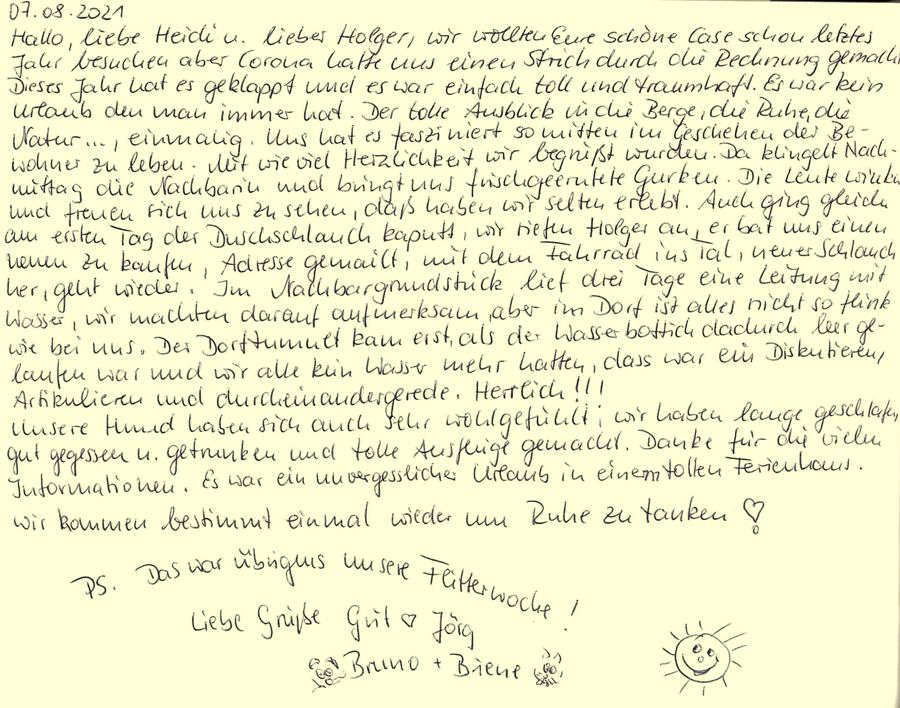 07.08.2021
Hallo, liebe Heidi u. lieber Holger, wir wollten Eure schöne Case schon letztes
Jahr besuchen aber Corona hatte uns einen Strich durch die Rechnung gemacht
Dieses Jahr hat es geklappt und es war einfach toll und traumhaft. Es war kein
Urlaub den man immer hat. Der tolle Ausblick in die Berge, die Ruhe, die
Natur..., einmalig. Uns hat es fasziniert so mitten im Geschehen der Be-
wohner zu leben. Mit wie viel Herzlichkeit wir begrüßt wurden. Da klingelt Nach-
mittag die Nachbarin und bringt uns frischgeerntete Gurken. Die Leute winken
und freuen sich uns zu sehen, daß haben wir selten erlebt. Auch ging gleich
am ersten Tag der Duschschlauch kaputt, wir riefen Holger an, er bat uns einen
neuen zu kaufen, Adresse gemailt, mit dem Fahrrad ins Tal, neuer Schlauch
her, geht wieder. Im Nachbargrundstück lief drei Tage eine Leitung mit
Wasser, wir machten darauf aufmerksam, aber im Dorf ist alles nicht so flink
wie bei uns. Der Dorftumult kam erst, als der Wasserbottich dadurch leer ge-
laufen war und wir alle kein Wasser mehr hatten, dass war ein Diskutieren,
Artikulieren und durcheinandergerede. Herrlich!!!
Unsere Hund haben sich auch sehr wohlgefühlt; wir haben lange geschlafen,
gut gegessen u. getrunken und tolle Ausflüge gemacht. Danke für die vielen
Informationen. Es war ein unvergesslicher Urlaub in einem tollen Ferienhaus.
wir kommen bestimmt einmal wieder um Ruhe zu tanken ♡
PS. Das war übrigens unsere Flitterwoche!
Liebe Grüße Grit ♡ Jörg
Bruno + Biene